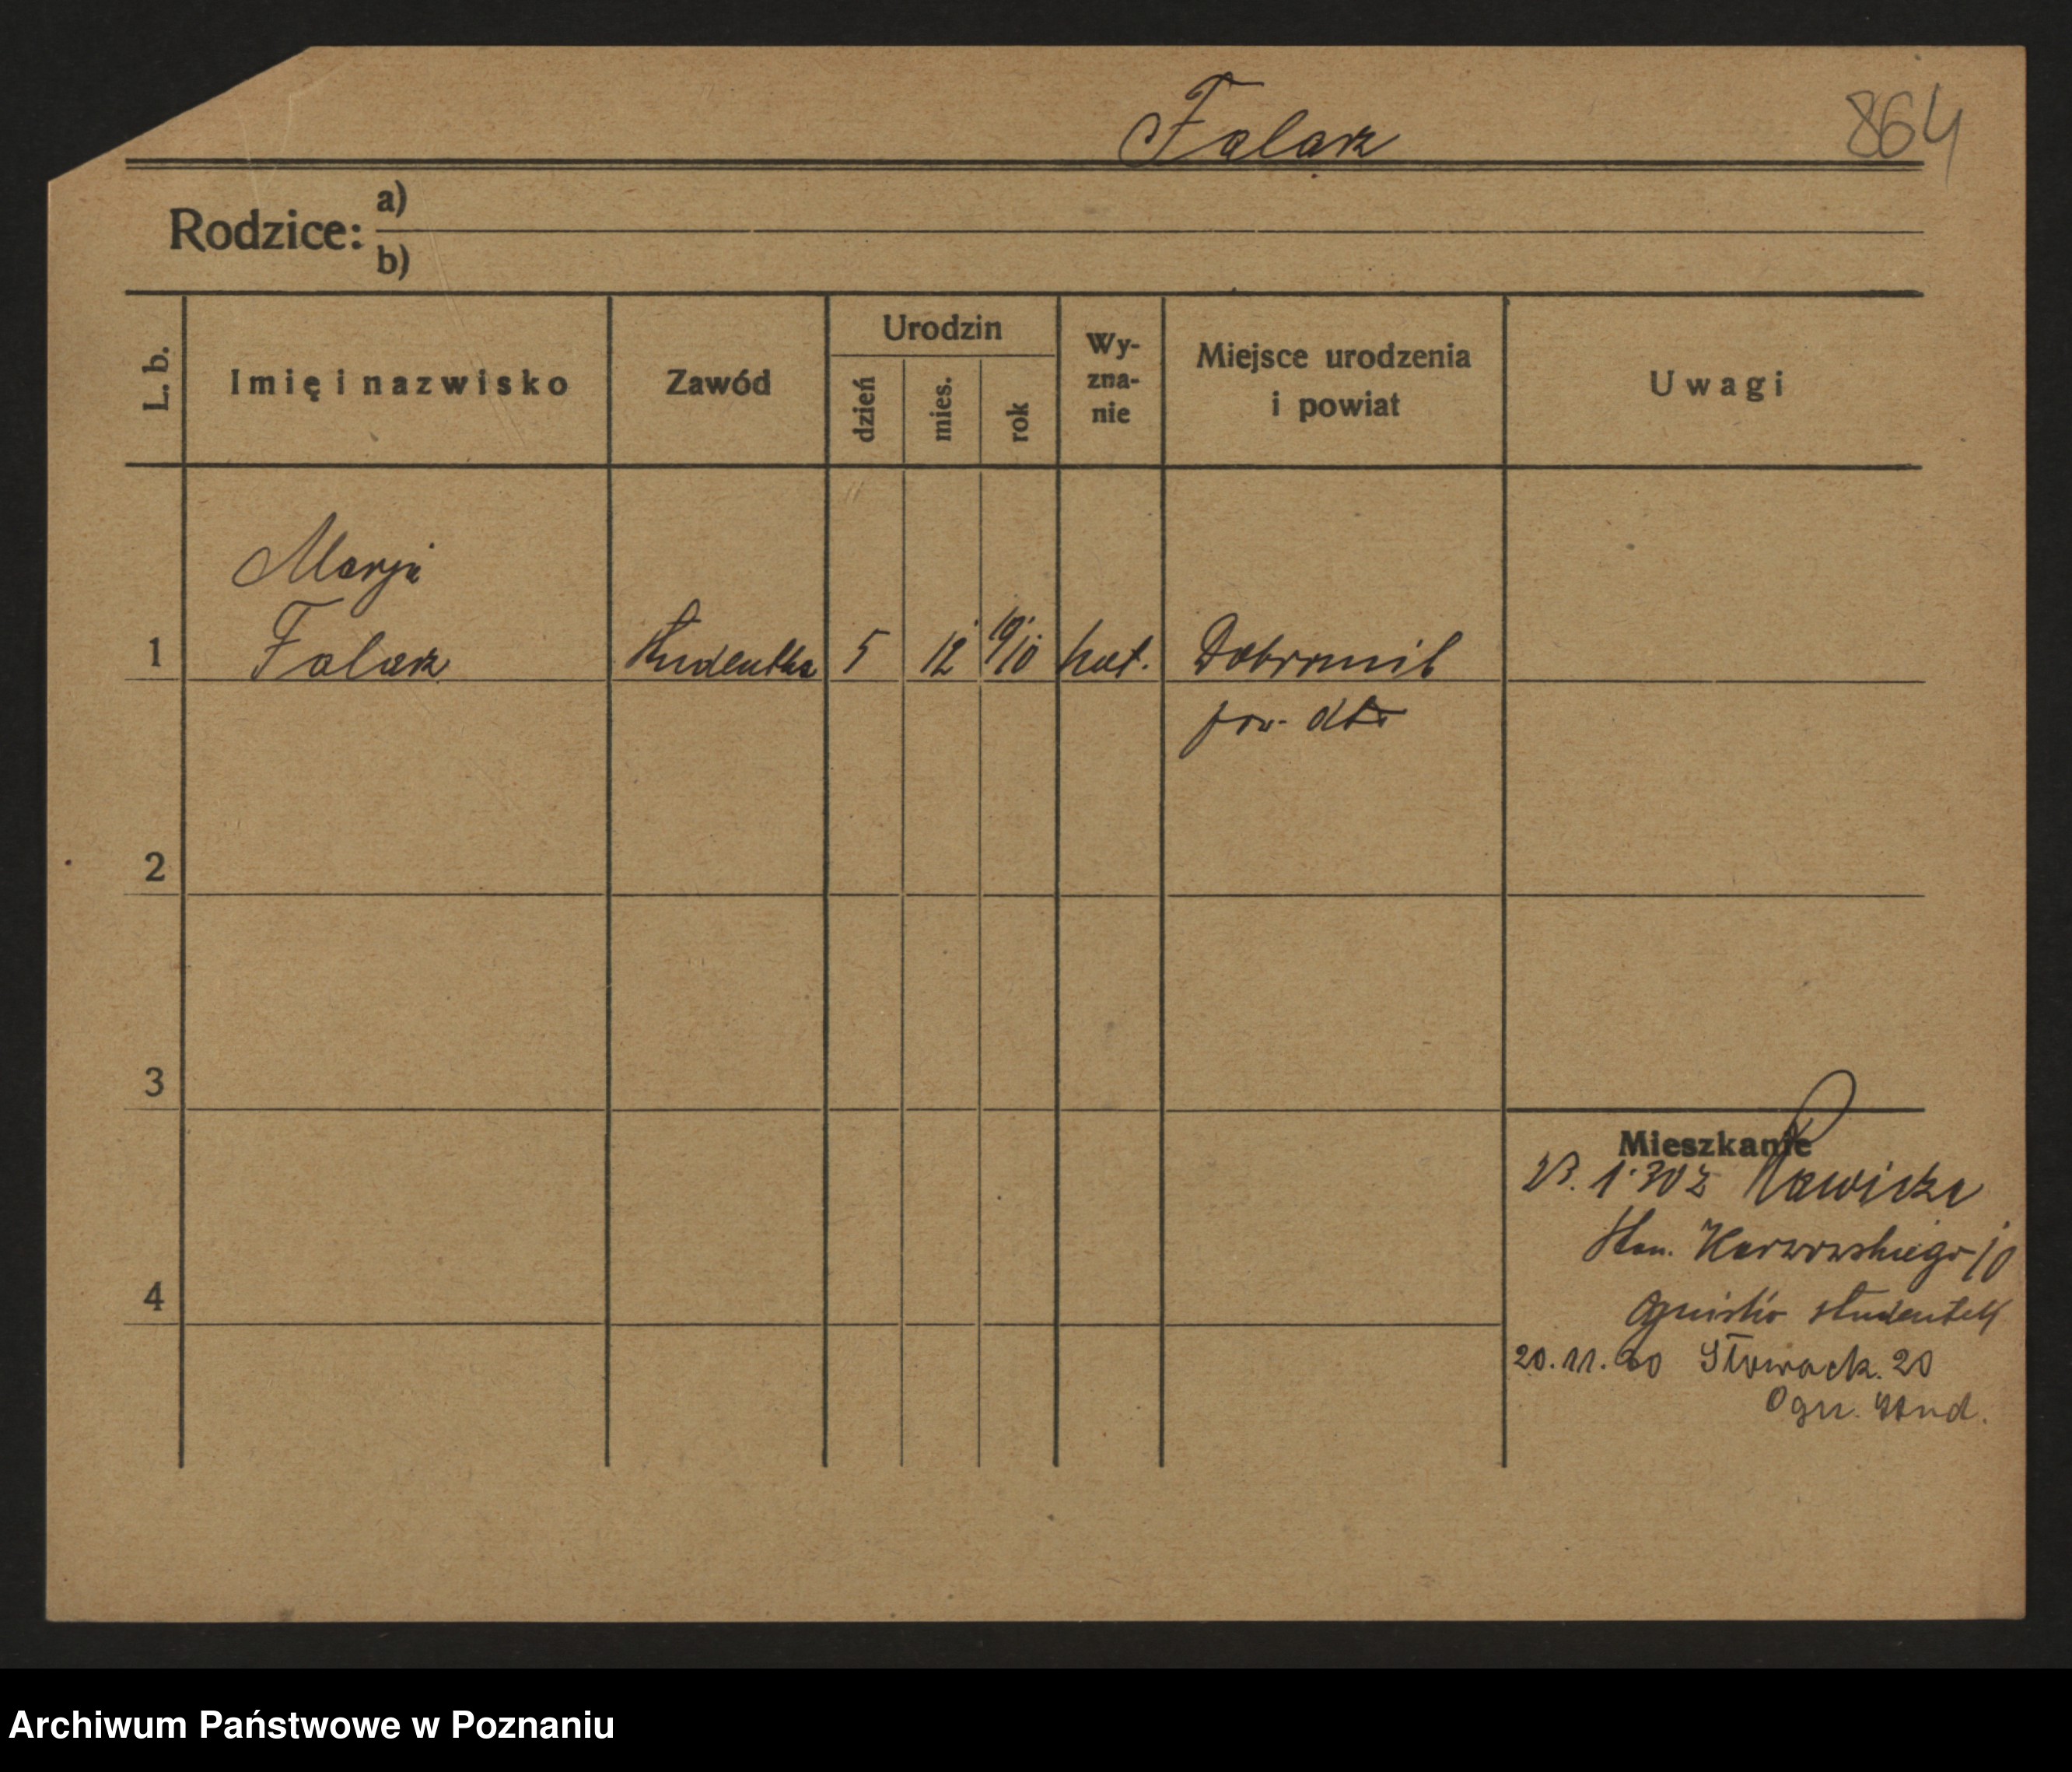 Falarz
864
Rodzice: a)
b)
L. b.
Imię i nazwisko
Zawód
Urodzin
dzień
mies.
rok
Wy-
zna-
nie
Miejsce urodzenia
i powiat
Uwagi
Marja
1 Falarz studentka 5 12 1910 kat. Dobromil
pow. dto
2
3
4
Mieszkanie
23. 1. 30 z Rawicza
Stan. Karwowskiego 10
Ognisko studentek
20. 11. 30 Słowack. 20
Ogn. Stud.
Archiwum Państwowe w Poznaniu